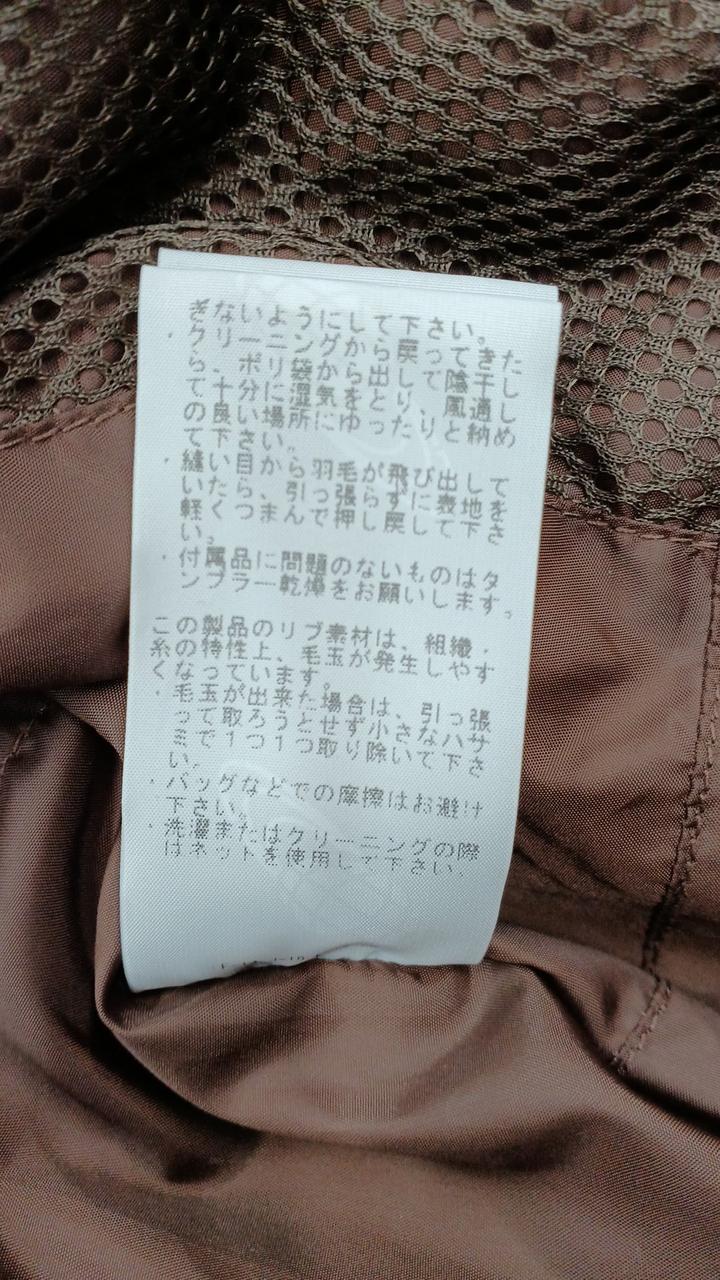 ぎないようにして下さい。
・クリーニングから戻ってきた
らポリ袋から出して陰干し
て、十分湿気をとり、風通し
の良い場所にゆったりと納め
て下さい。
・縫い目から羽毛が飛び出して
いたら、引っ張らずに表地を
軽くつまんで押し戻して下さ
い。
・付属品に問題のないものはタ
ンブラー乾燥をお願いします。
この製品のリブ素材は、組織・
糸の特性上、毛玉が発生しやす
くなっています。
・毛玉が出来た場合は、引っ張
って取ろうとせず小さなハサ
ミで1つ1つ取り除いて下さ
い。
・バッグなどでの摩擦はお避け
下さい。
・洗濯またはクリーニングの際
はネットを使用して下さい。